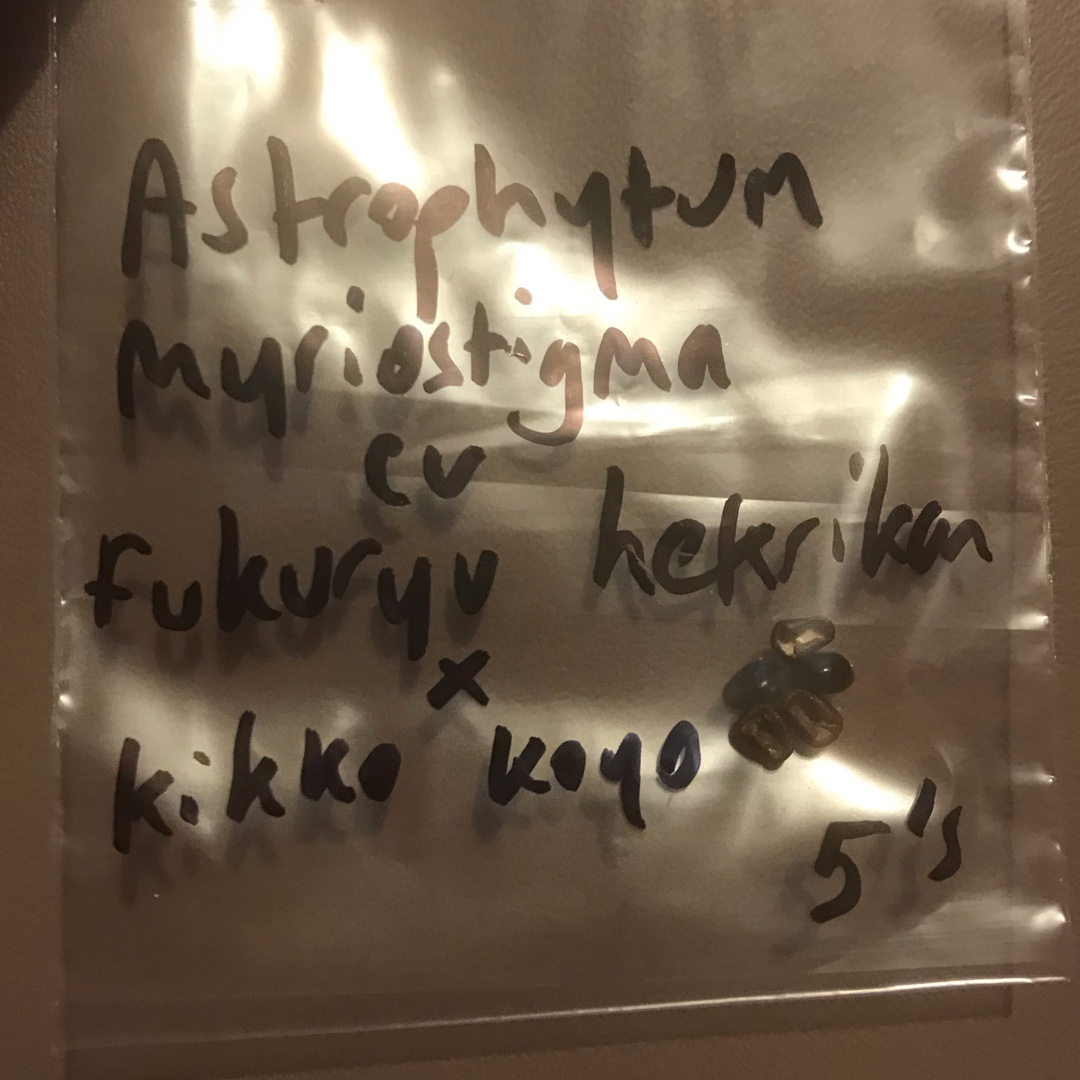 Astrophytum
myriostigma
cv
Fukuryu hekrikan
x
kikko koyo
5's